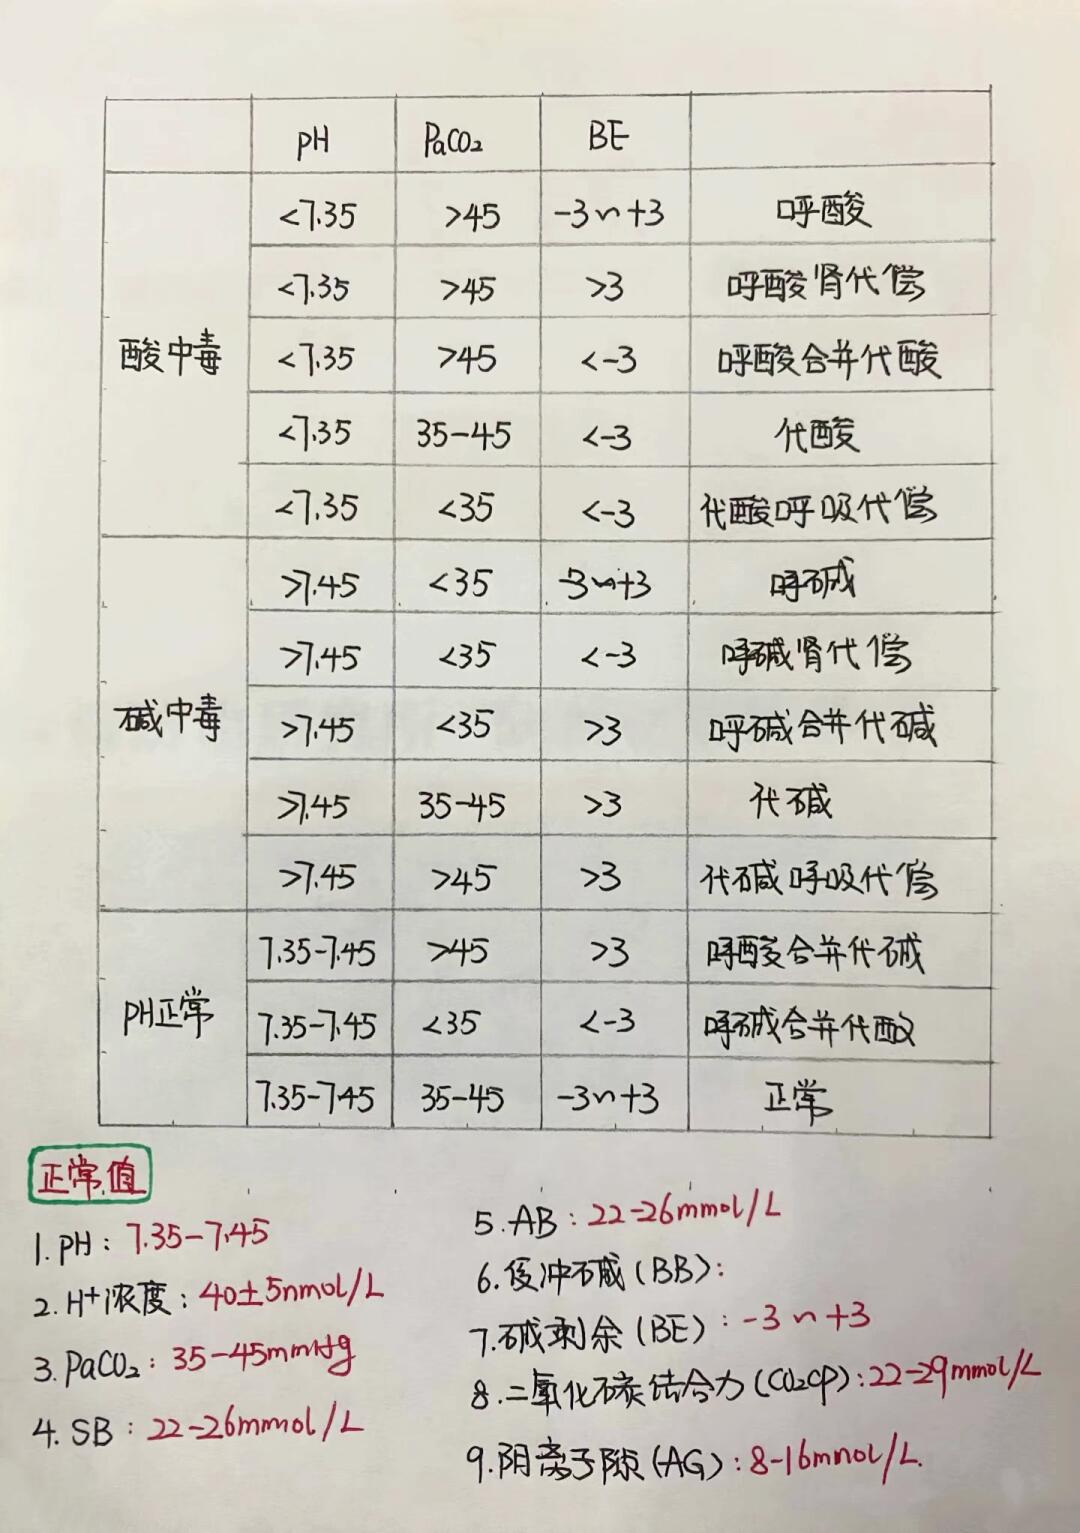 pH PaCO₂ BE
<7.35 >45 -3~+3 呼酸
<7.35 >45 >3 呼酸肾代偿
酸中毒 <7.35 >45 <-3 呼酸合并代酸
<7.35 35-45 <-3 代酸
<7.35 <35 <-3 代酸呼吸代偿
>7.45 <35 -3~+3 呼碱
>7.45 <35 <-3 呼碱肾代偿
碱中毒 >7.45 <35 >3 呼碱合并代碱
>7.45 35-45 >3 代碱
>7.45 >45 >3 代碱呼吸代偿
7.35-7.45 >45 >3 呼酸合并代碱
PH正常 7.35-7.45 <35 <-3 呼碱合并代酸
7.35-745 35-45 -3~+3 正常
正常值
1. PH: 7.35-7.45
2. H⁺浓度: 40±5nmol/L
3. PaCO₂: 35-45mmHg
4. SB: 22-26mmol/L
5. AB: 22-26mmol/L
6. 缓冲碱(BB):
7. 碱剩余(BE): -3~+3
8. 二氧化碳结合力(CO₂CP): 22-29mmol/L
9. 阴离子隙(AG): 8-16mmol/L.